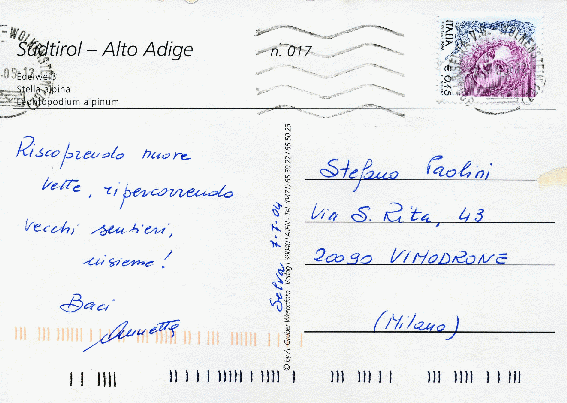 Südtirol – Alto Adige
n. 017
Edelweiß
Stella alpina
Leontopodium alpinum
ITALIA
€ 0,45
Riscoprendo nuove
vette, ripercorrendo
vecchi sentieri,
insieme!
Baci
Annetta
Selva 7-7-04
Stefano Paolini
Via S. Rita, 43
20090 VIMODRONE
(Milano)